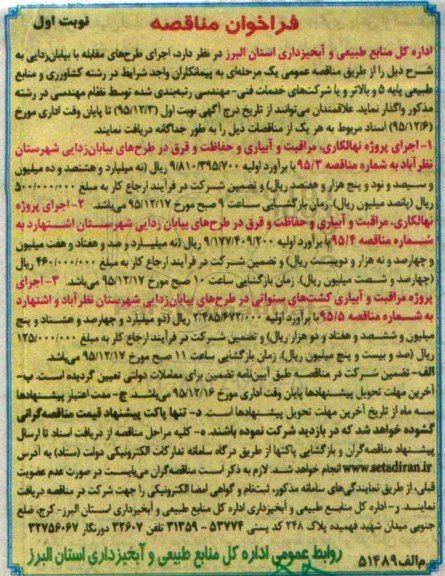 نوبت اول
فراخوان مناقصه
اداره کل منابع طبیعی و آبخیزداری استان البرز در نظر دارد، اجرای طرح‌های مقابله با بیابان‌زدایی به
شرح ذیل را از طریق مناقصه عمومی یک مرحله‌ای به پیمانکاران واجد شرایط در رشته کشاورزی و منابع
طبیعی پایه ۵ و بالاتر و یا شرکت‌های خدمات فنی- مهندسی رتبه‌بندی شده توسط نظام مهندسی در رشته
مذکور واگذار نماید. علاقمندان می‌توانند از تاریخ درج آگهی نوبت اول (۹۵/۱۲/۳) تا پایان وقت اداری مورخ
(۹۵/۱۲/۶) اسناد مربوط به هر یک از مناقصات ذیل را به طور جداگانه دریافت نمایند.
۱- اجرای پروژه نهالکاری، مراقبت و آبیاری و حفاظت و قرق در طرح‌های بیابان‌زدایی شهرستان
نظرآباد به شماره مناقصه ۹۵/۳ با برآورد اولیه ۹/۸۱۰/۳۹۵/۷۰۰ ریال (نه میلیارد و هشتصد و ده میلیون
و سیصد و نود و پنج هزار و هفتصد ریال) و تضمین شرکت در فرآیند ارجاع کار به مبلغ ۵۰۰/۰۰۰/۰۰۰
ریال (پانصد میلیون ریال)، زمان بازگشایی ساعت ۹ صبح مورخ ۹۵/۱۲/۱۷ می‌باشد. ۲- اجرای پروژه
نهالکاری، مراقبت و آبیاری و حفاظت و قرق در طرح‌های بیابان زدایی شهرستان اشتهارد به
شماره مناقصه ۹۵/۴ با برآورد اولیه ۹/۱۷۷/۴۰۹/۲۰۰ ریال (نه میلیارد و صد و هفتاد و هفت میلیون
و چهارصد و نه هزار و دویست ریال) و تضمین شرکت در فرآیند ارجاع کار به مبلغ ۴۶۰/۰۰۰/۰۰۰ ریال
(چهارصد و شصت میلیون ریال). زمان بازگشایی ساعت ۱۰ صبح مورخ ۹۵/۱۲/۱۷ می‌باشد. ۳- اجرای
پروژه مراقبت و آبیاری کشت‌های سنواتی در طرح‌های بیابان‌زدایی شهرستان نظرآباد و اشتهارد
به شماره مناقصه ۹۵/۵ با برآورد اولیه ۲/۴۸۵/۶۷۲/۰۰۰ ریال (دو میلیارد و چهارصد و هشتاد و پنج
میلیون و ششصد و هفتاد و دو هزار ریال) و تضمین شرکت در فرآیند ارجاع کار به مبلغ ۱۲۵/۰۰۰/۰۰۰
ریال (صد و بیست و پنج میلیون ریال). زمان بازگشایی ساعت ۱۱ صبح مورخ ۹۵/۱۲/۱۷ می‌باشد.
الف- تضمین شرکت در مناقصه طبق آیین‌نامه تضمین برای معاملات دولتی تعیین گردیده است. ب-
آخرین مهلت تحویل پیشنهادها پایان وقت اداری مورخ ۹۵/۱۲/۱۶ می‌باشد. ج- مدت اعتبار پیشنهادها
سه ماه از تاریخ آخرین مهلت تحویل پیشنهادها است. د- تنها پاکت پیشنهاد قیمت مناقصه‌گرانی
گشوده خواهد شد که در بازدید شرکت نموده باشند. ه- کلیه مراحل مناقصه از دریافت اسناد تا ارسال
پیشنهاد مناقصه‌گران و بازگشایی پاکتها از طریق درگاه سامانه تدارکات الکترونیکی دولت (ستاد) به آدرس
www.setadiran.ir انجام خواهد شد. لازم به ذکر است مناقصه‌گران می‌بایست در صورت عدم عضویت
قبلی، از طریق نمایندگی‌های سامانه مذکور، ثبت‌نام و گواهی امضا الکترونیکی را جهت شرکت در مناقصه دریافت
نمایند. ر- اداره کل منابع طبیعی و آبخیزداری اداره کل منابع طبیعی و آبخیزداری استان البرز- کرج، ضلع
جنوبی میدان شهید فهمیده پلاک ۲۴۸ کد پستی ۵۳۷۷۴ - ۳۱۳۵۹ تلفن ۳۲۶۰۷ دورنگار ۳۲۷۵۶۰۶۷
روابط عمومی اداره کل منابع طبیعی و آبخیزداری استان البرز
م الف ۵۱۴۸۹